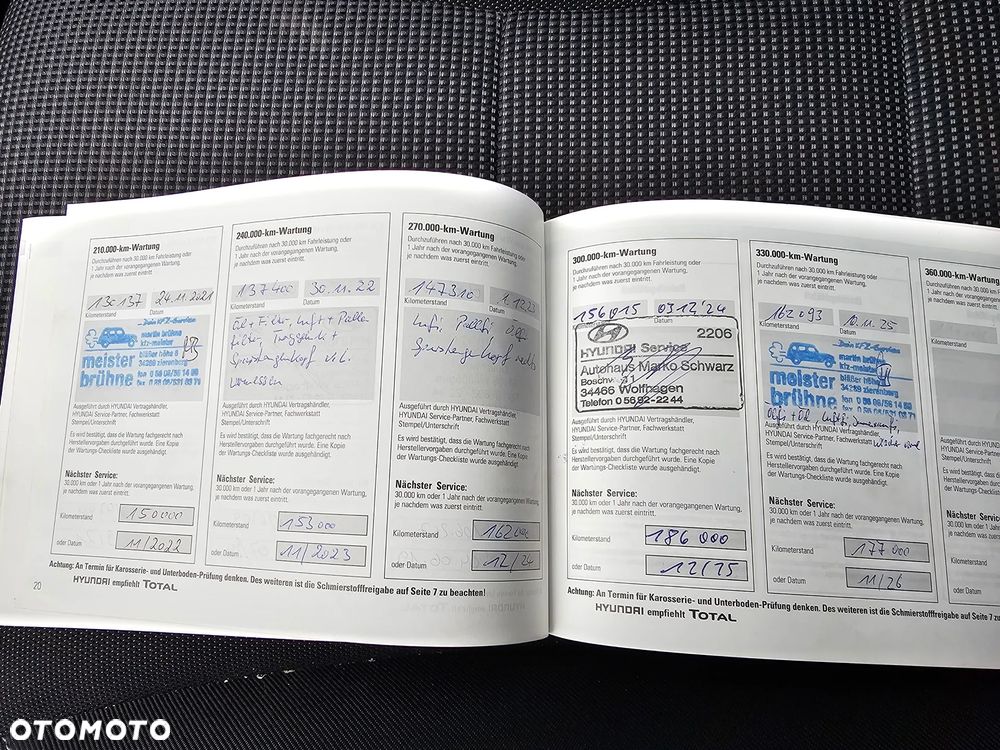 210.000-km-Wartung
Durchzuführen nach 30.000 km Fahrleistung oder
1 Jahr nach der vorangegangenen Wartung,
je nachdem was zuerst eintritt.
130137 24.11.2021
Kilometerstand Datum
Dein KFZ-Service
martin brühne
kfz-meister
meister
brühne
bläßer höhe 8
34289 zierenberg
fon 0 56 06/56 14 89
Ausgeführt durch HYUNDAI Vertragshändler,
HYUNDAI Service-Partner, Fachwerkstatt
Stempel/Unterschrift
Es wird bestätigt, dass die Wartung fachgerecht nach
Herstellervorgaben durchgeführt wurde. Eine Kopie
der Wartungs-Checkliste wurde ausgehändigt.
Nächster Service:
30.000 km oder 1 Jahr nach der vorangegangenen Wartung,
je nachdem was zuerst eintritt.
Kilometerstand 150000
oder Datum 11/2022
240.000-km-Wartung
Durchzuführen nach 30.000 km Fahrleistung oder
1 Jahr nach der vorangegangenen Wartung,
je nachdem was zuerst eintritt.
137400 30.11.22
Kilometerstand Datum
Öl + Filter, Luft + Pollen
filter,
Ausgeführt durch HYUNDAI Vertragshändler,
HYUNDAI Service-Partner, Fachwerkstatt
Stempel/Unterschrift
Es wird bestätigt, dass die Wartung fachgerecht nach
Herstellervorgaben durchgeführt wurde. Eine Kopie
der Wartungs-Checkliste wurde ausgehändigt.
Nächster Service:
30.000 km oder 1 Jahr nach der vorangegangenen Wartung,
je nachdem was zuerst eintritt.
Kilometerstand 153000
oder Datum 11/2023
270.000-km-Wartung
Durchzuführen nach 30.000 km Fahrleistung oder
1 Jahr nach der vorangegangenen Wartung,
je nachdem was zuerst eintritt.
147310
Kilometerstand Datum
Ausgeführt durch HYUNDAI Vertragshändler,
HYUNDAI Service-Partner, Fachwerkstatt
Stempel/Unterschrift
Es wird bestätigt, dass die Wartung fachgerecht nach
Herstellervorgaben durchgeführt wurde. Eine Kopie
der Wartungs-Checkliste wurde ausgehändigt.
Nächster Service:
30.000 km oder 1 Jahr nach der vorangegangenen Wartung,
je nachdem was zuerst eintritt.
Kilometerstand
oder Datum 12/24
Achtung: An Termin für Karosserie- und Unterboden-Prüfung denken. Des weiteren ist die Schmierstofffreigabe auf Seite 7 zu beachten!
20
HYUNDAI empfiehlt TOTAL
300.000-km-Wartung
Durchzuführen nach 30.000 km Fahrleistung oder
1 Jahr nach der vorangegangenen Wartung,
je nachdem was zuerst eintritt.
156015 03.12.24
Datum
2206
HYUNDAI Service
Autohaus Marko Schwarz
34466 Wolfhagen
Telefon 0 56 92-22 44
Ausgeführt durch HYUNDAI Vertragshändler,
HYUNDAI Service-Partner, Fachwerkstatt
Stempel/Unterschrift
Es wird bestätigt, dass die Wartung fachgerecht nach
Herstellervorgaben durchgeführt wurde. Eine Kopie
der Wartungs-Checkliste wurde ausgehändigt.
Nächster Service:
30.000 km oder 1 Jahr nach der vorangegangenen Wartung,
je nachdem was zuerst eintritt.
Kilometerstand 186 000
oder Datum 12/25
330.000-km-Wartung
Durchzuführen nach 30.000 km Fahrleistung oder
1 Jahr nach der vorangegangenen Wartung,
je nachdem was zuerst eintritt.
162093 10.11.25
Kilometerstand Datum
Dein KFZ-Service
martin brühne
kfz-meister
meister
brühne
bläßer höhe 8
34289 zierenberg
fon 0 56 06/56 14 89
Ausgeführt durch HYUNDAI Vertragshändler,
HYUNDAI Service-Partner, Fachwerkstatt
Stempel/Unterschrift
Es wird bestätigt, dass die Wartung fachgerecht nach
Herstellervorgaben durchgeführt wurde. Eine Kopie
der Wartungs-Checkliste wurde ausgehändigt.
Nächster Service:
30.000 km oder 1 Jahr nach der vorangegangenen Wartung,
je nachdem was zuerst eintritt.
Kilometerstand 177 000
oder Datum 11/26
360.000-km-Wartung
Durchzuführen nach 30.000 km
1 Jahr nach der vorangegangenen
je nachdem was zuerst eintritt.
Kilometerstand
Ausgeführt durch HYUNDAI
HYUNDAI Service-Partner,
Stempel/Unterschrift
Es wird bestätigt, dass die
Herstellervorgaben
der Wartungs-Checkliste
Nächster Service:
30.000 km oder 1 Jahr
je nachdem was zuerst
Kilometerstand
oder Datum
Achtung: An Termin für Karosserie- und Unterboden-Prüfung denken. Des weiteren ist die Schmierstofffreigabe auf Seite 7
HYUNDAI empfiehlt TOTAL
OTOMOTO